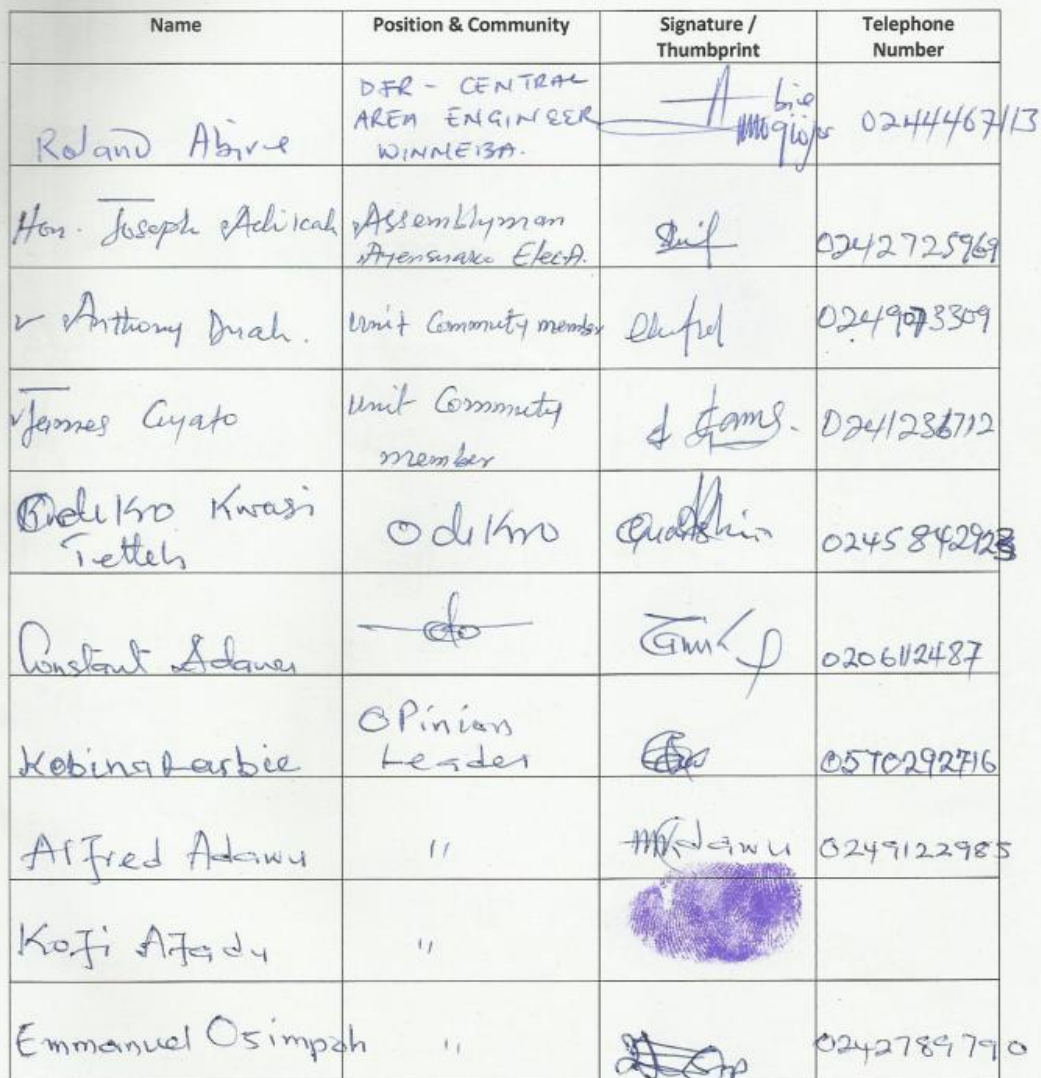 Name Position & Community Signature / Thumbprint Telephone Number
Roland Abire DFR - CENTRAL AREA ENGINEER WINNEBA. 0244467113
Hon. Joseph Assemblyman 0242725969
Anthony Duah. Unit Commuty member 0249073309
James Unit Commuty member Jams. 0241236712
Odikro Kwasi Tetteh Odikro 024584292
Constant do 0206112487
Kobina Larbie OPinion Leader 0570292716
Alfred Adawu " Adawu 0249122985
Kofi Afadu "
Emmanuel Osimpah " 0242789790